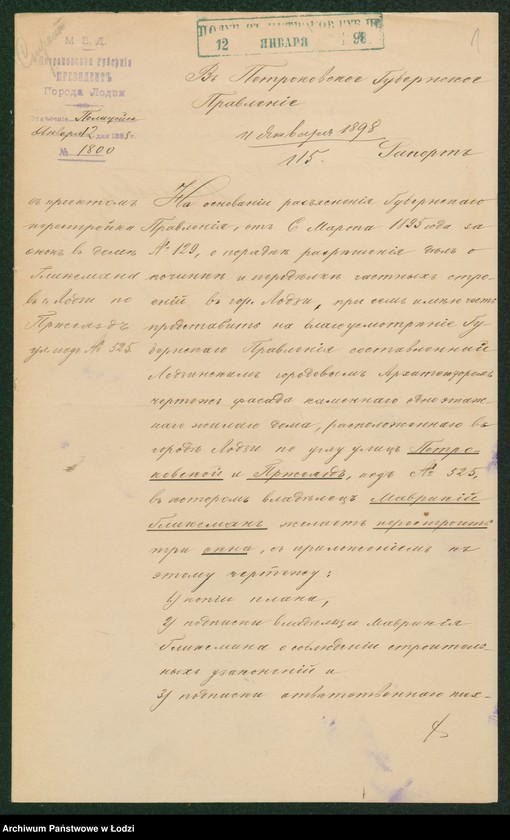 М. В. Д.
Петроковской губерніи
ПРЕЗИДЕНТЪ
Города Лодзи
Полиціи
Января 12 дня 1898 г.
№ 1800
12 ЯНВАРЯ 98
1
Въ Петроковское Губернское
Правленіе
11 Января 1898
115.
Рапортъ
съ проектомъ
перестройки
оконъ въ доме
Гликсмана
въ г. Лодзи по
Пржеяздъ
ул. подъ № 525.
На основаніи разъясненія Губернскаго
Правленія, отъ 6 Марта 1895 года за
№ 129, о порядке разрешенія делъ о
починке и переделке частныхъ стро-
еній въ гор. Лодзи, при семъ имею честь
представить на благоусмотреніе Гу-
бернскаго Правленія составленный
Лодзинскимъ городовымъ Архитекторомъ
чертежъ фасада каменнаго одноэтаж-
наго жилаго дома, расположеннаго въ
городе Лодзи по углу улицъ Петро-
ковской и Пржеяздъ, подъ № 525,
въ которомъ владелецъ Маврикій
Гликсманъ желаетъ перестроить
три окна, съ приложеніемъ къ
этому чертежу:
1) копіи плана,
2) подписки владельца Маврикія
Гликсмана о соблюденіи строитель-
ныхъ узаконеній и
3) подписки ответственнаго тех-
Archiwum Państwowe w Łodzi